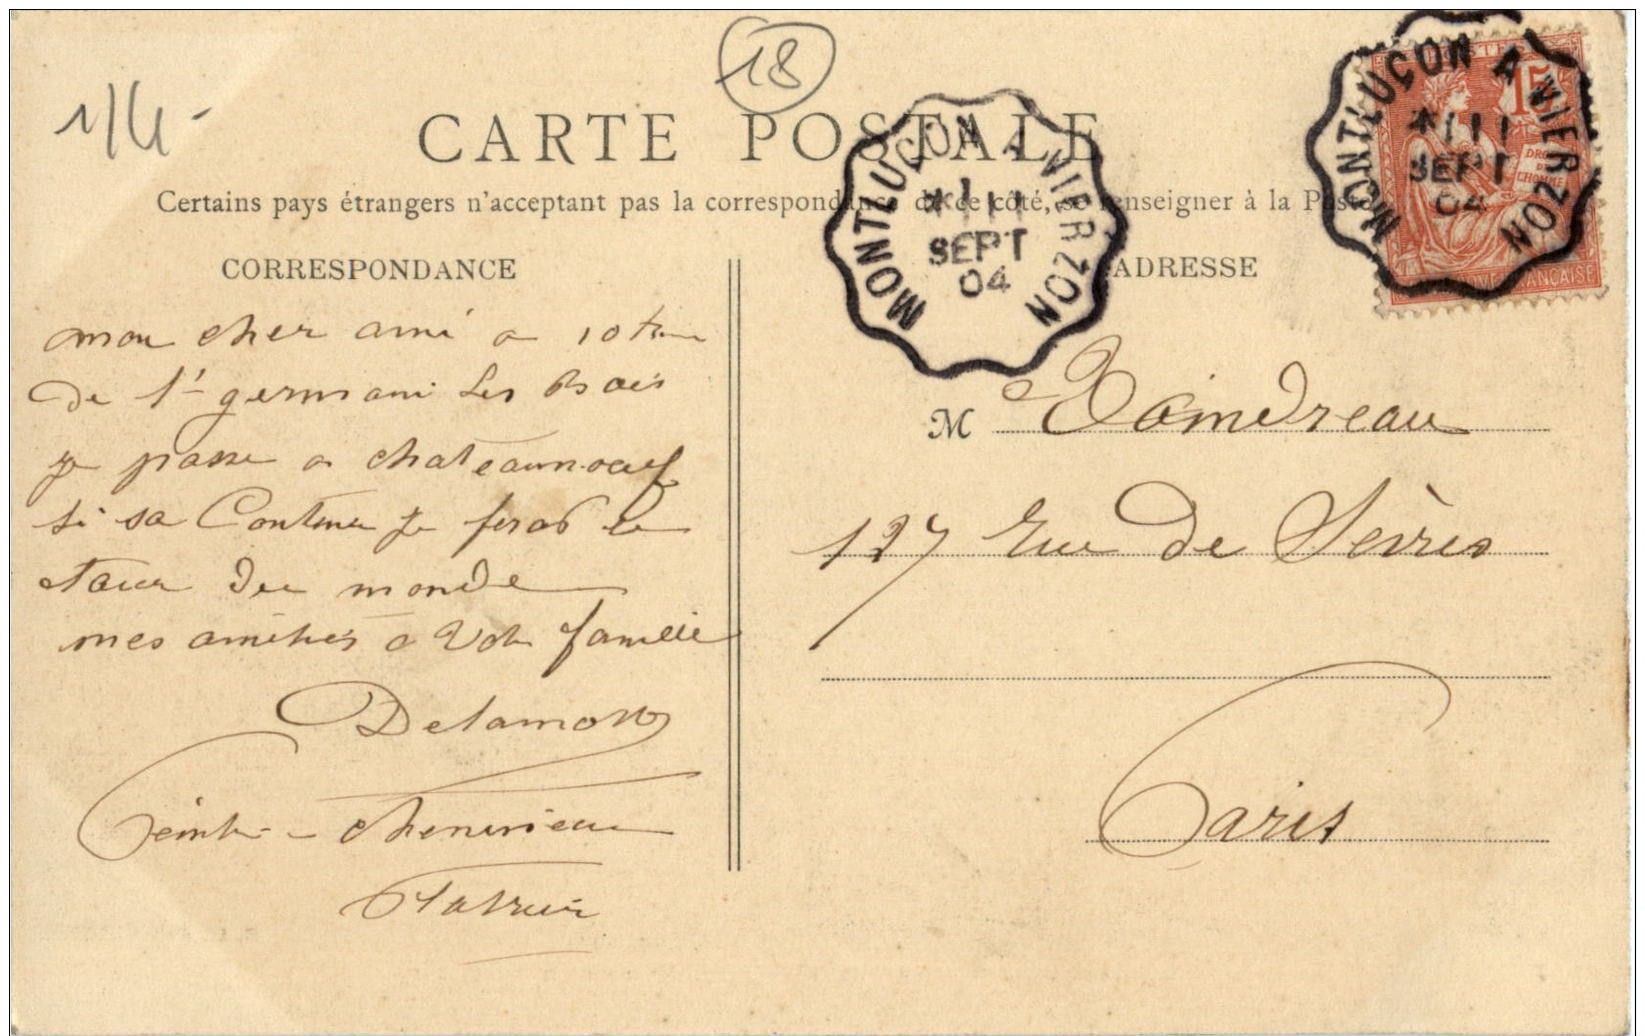 18
1/4-
CARTE POSTALE
Certains pays étrangers n'acceptant pas la correspondance de ce côté, se renseigner à la Poste
CORRESPONDANCE
ADRESSE
MONTLUÇON A VIERZON
* 1 11
SEPT
04
MONTLUÇON A VIERZON
* 111
SEPT
04
15
DROITS
DE
L'HOMME
FRANÇAISE
mon cher ami a 10
de St germain les Bois
je passe a chateauneuf
si sa Continu je ferai le
tour du monde
mes amitiés a Votre famille
Delamotte
M
127 rue de Sèvres
Paris